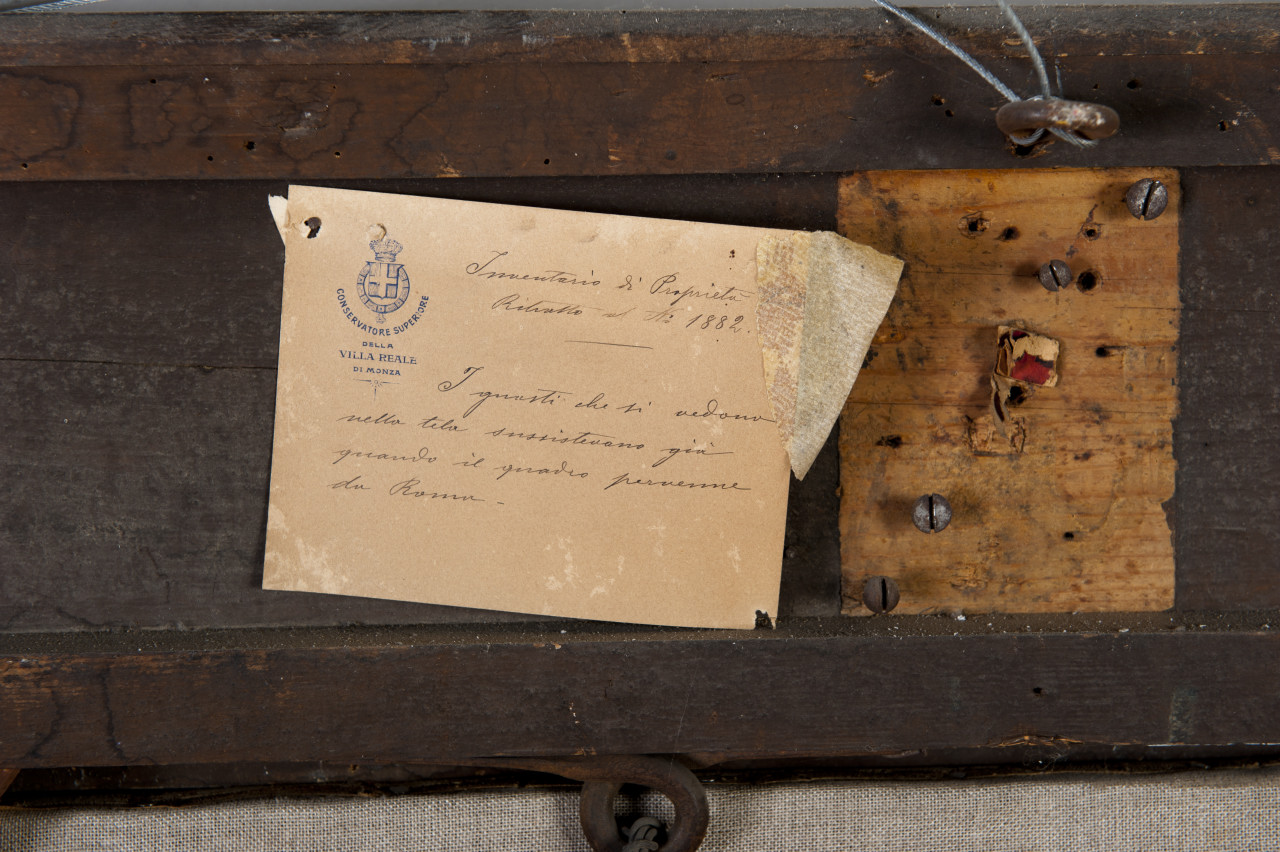 CONSERVATORE SUPERIORE
DELLA
VILLA REALE
DI MONZA
Inventario di Proprietà
Ritratto al No 1882.
I guasti che si vedono
nella tela sussistevano già
quando il quadro pervenne
da Roma -